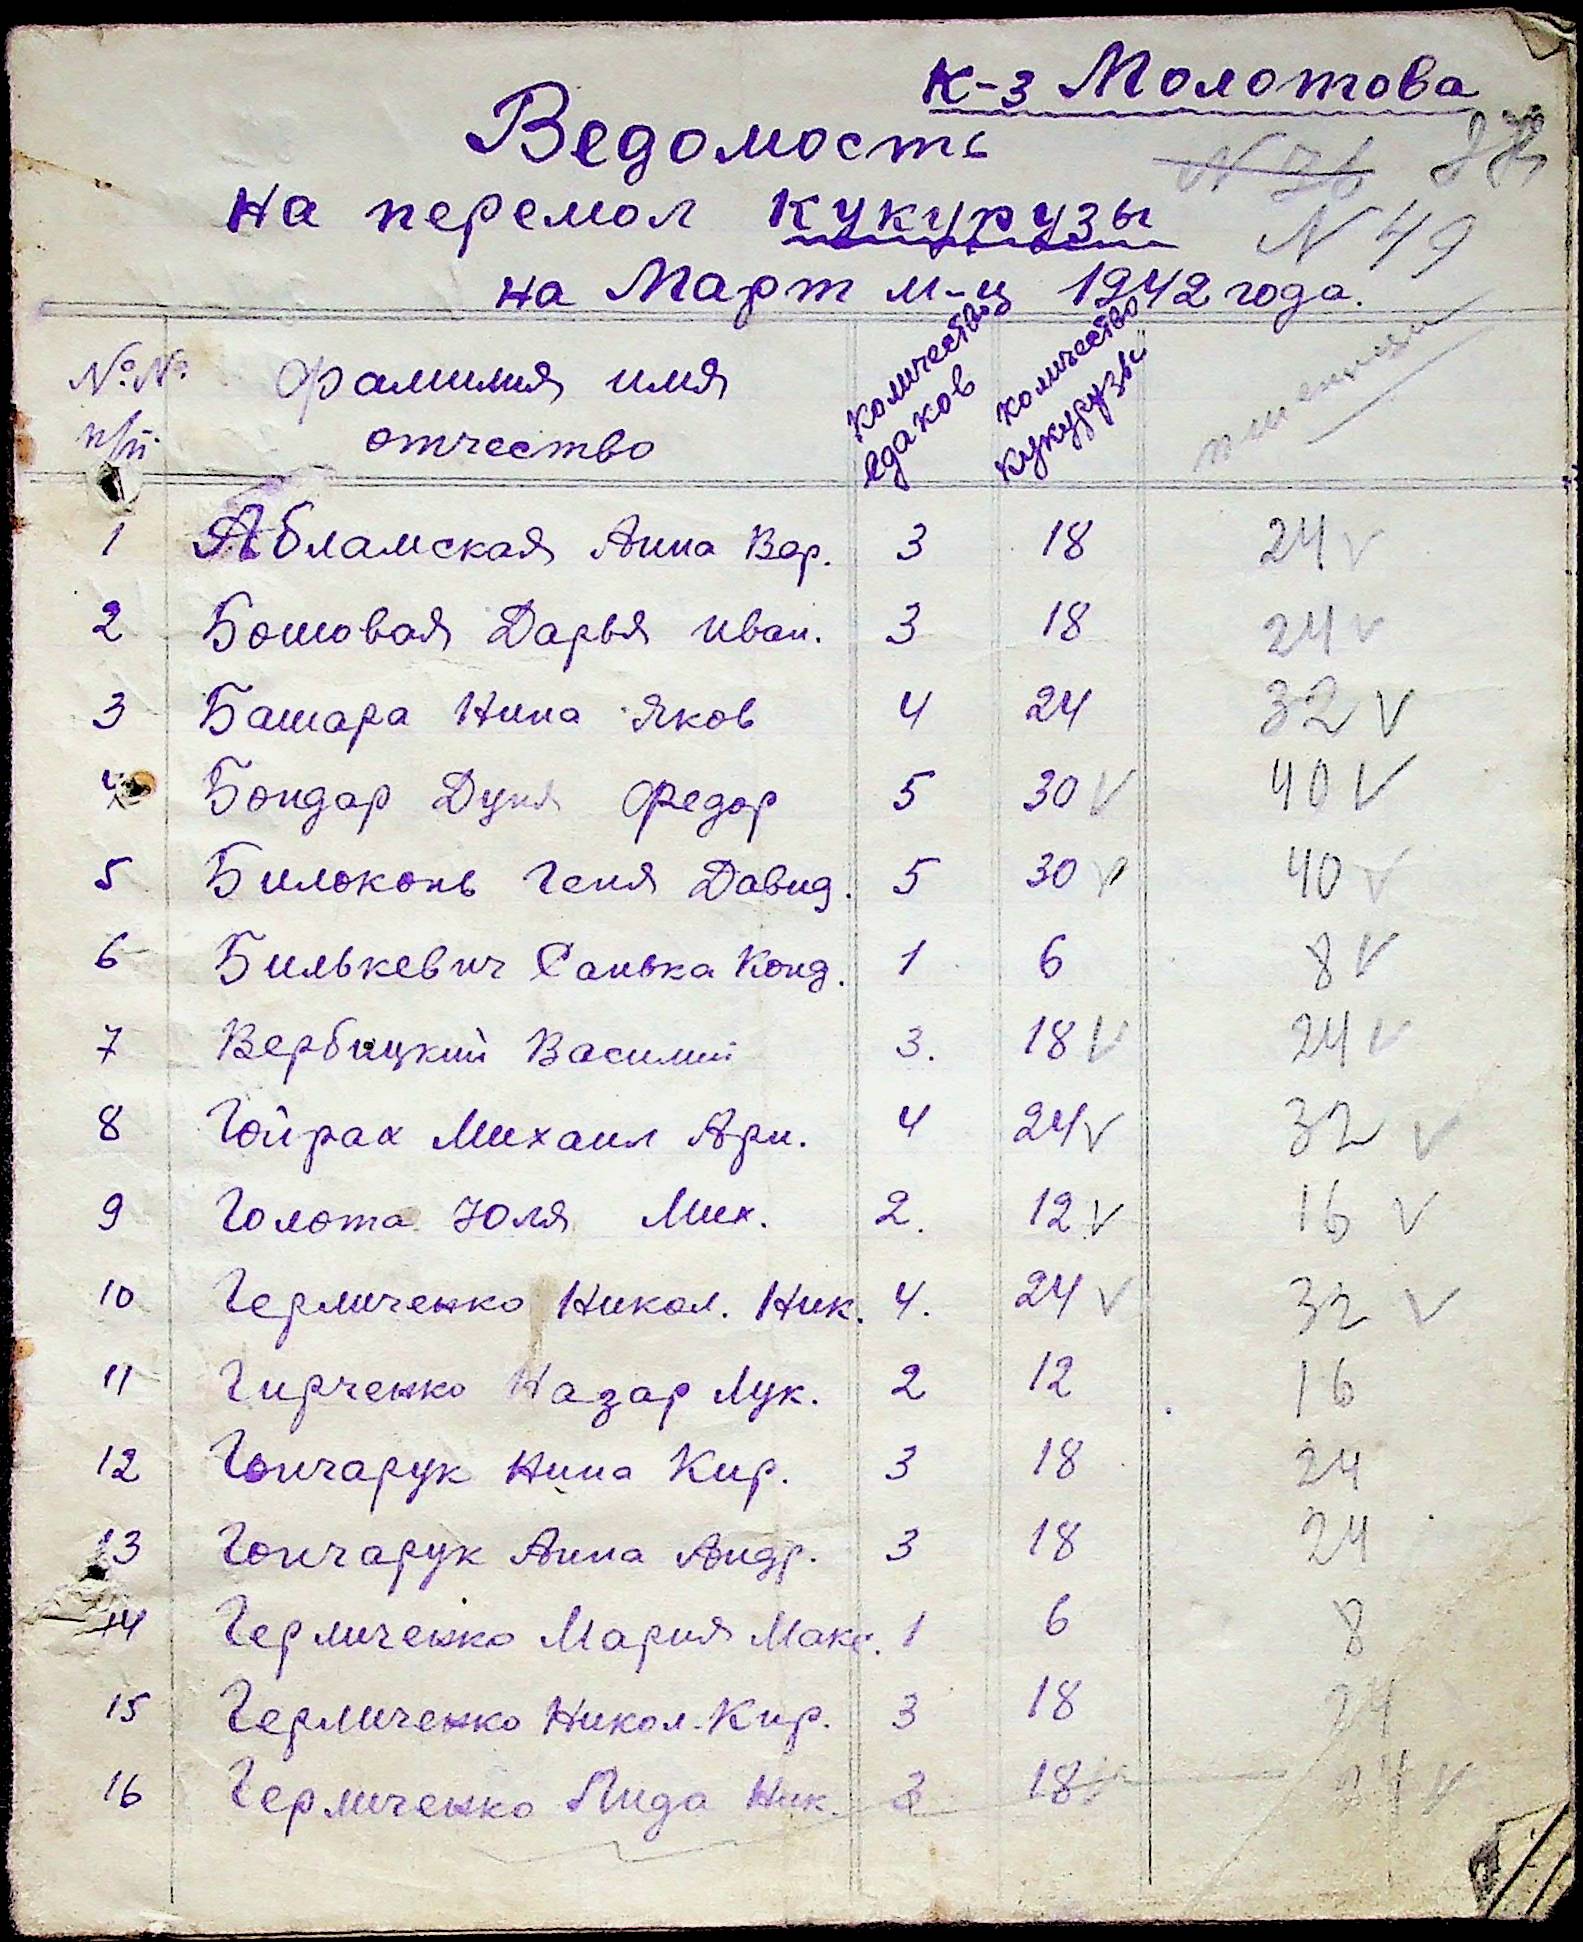 к-з Молотова
Ведомость
N 76
на перемол кукурузы
N 49
на Март м-ц 1942 года.
№№ п/п. фамилия имя отчество количество едаков количество кукурузы пшеници
1 Абламская Анна Вар. 3 18 24 V
2 Бошовая Дарья Иван. 3 18 24 V
3 Башара Нина Яков 4 24 32 V
4 Бондар Дуня Федор 5 30 V 40 V
5 Билоконь Геня Давид. 5 30 V 40 V
6 Билькевич Санька Конд. 1 6 8 V
7 Вербицкий Василий 3. 18 V 24 V
8 Гойрах Михаил Арн. 4 24 V 32 V
9 Голота Юля Мих. 2. 12 V 16 V
10 Германченко Никол. Ник. 4. 24 V 32 V
11 Гирченко Назар Лук. 2 12 16
12 Гончарук Нина Кир. 3 18 24
13 Гончарук Анна Андр. 3 18 24
14 Германченко Мария Макс. 1 6 8
15 Германченко Никол. Кир. 3 18 24
16 Германченко Лида Ник. 3 18 V 24 V